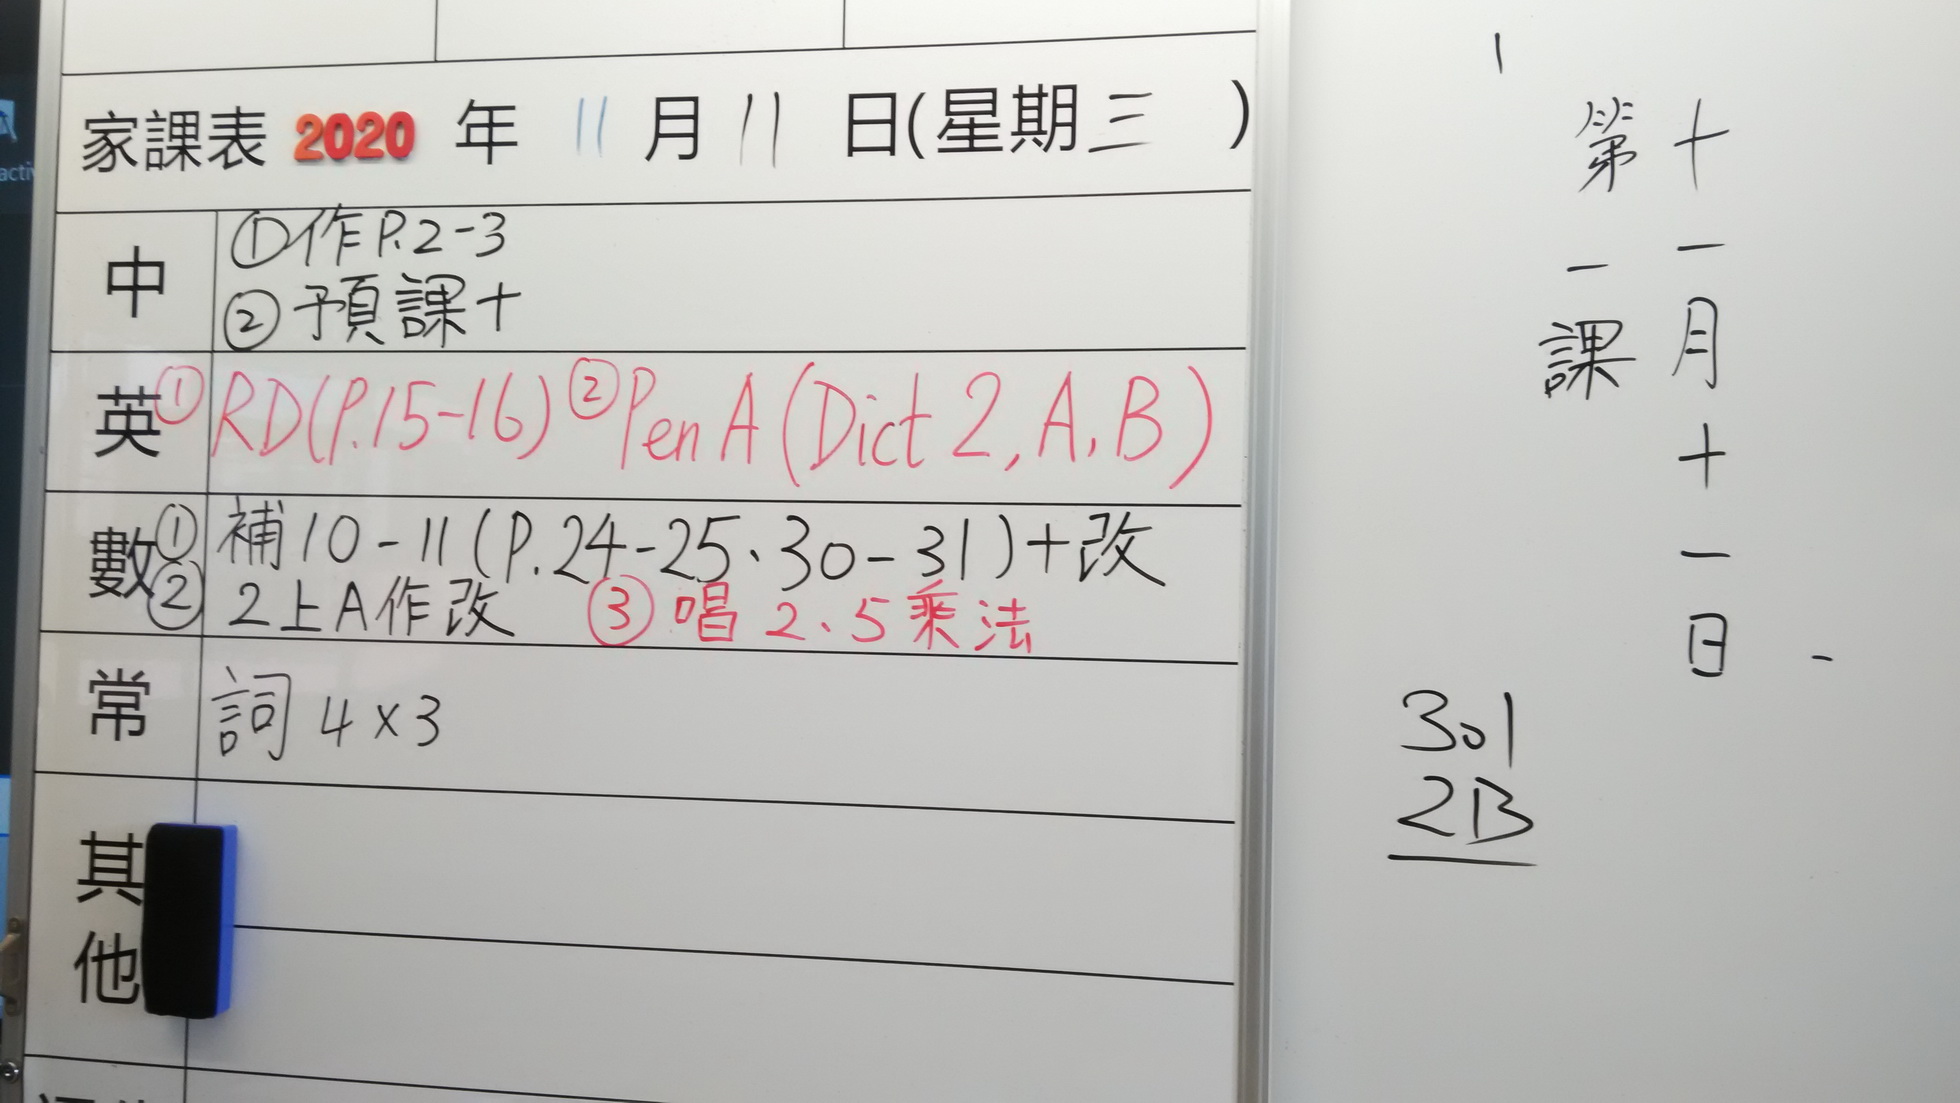 家課表 2020 年 11 月 11 日(星期三 )
中 ①作P.2-3
②預課十
英 ①RD(P.15-16) ②Pen A (Dict 2, A, B)
數 ①補10-11(P.24-25、30-31)+改
②2上A作改 ③唱2、5乘法
常 詞4x3
其他
十一月十一日
第一課
301
2B